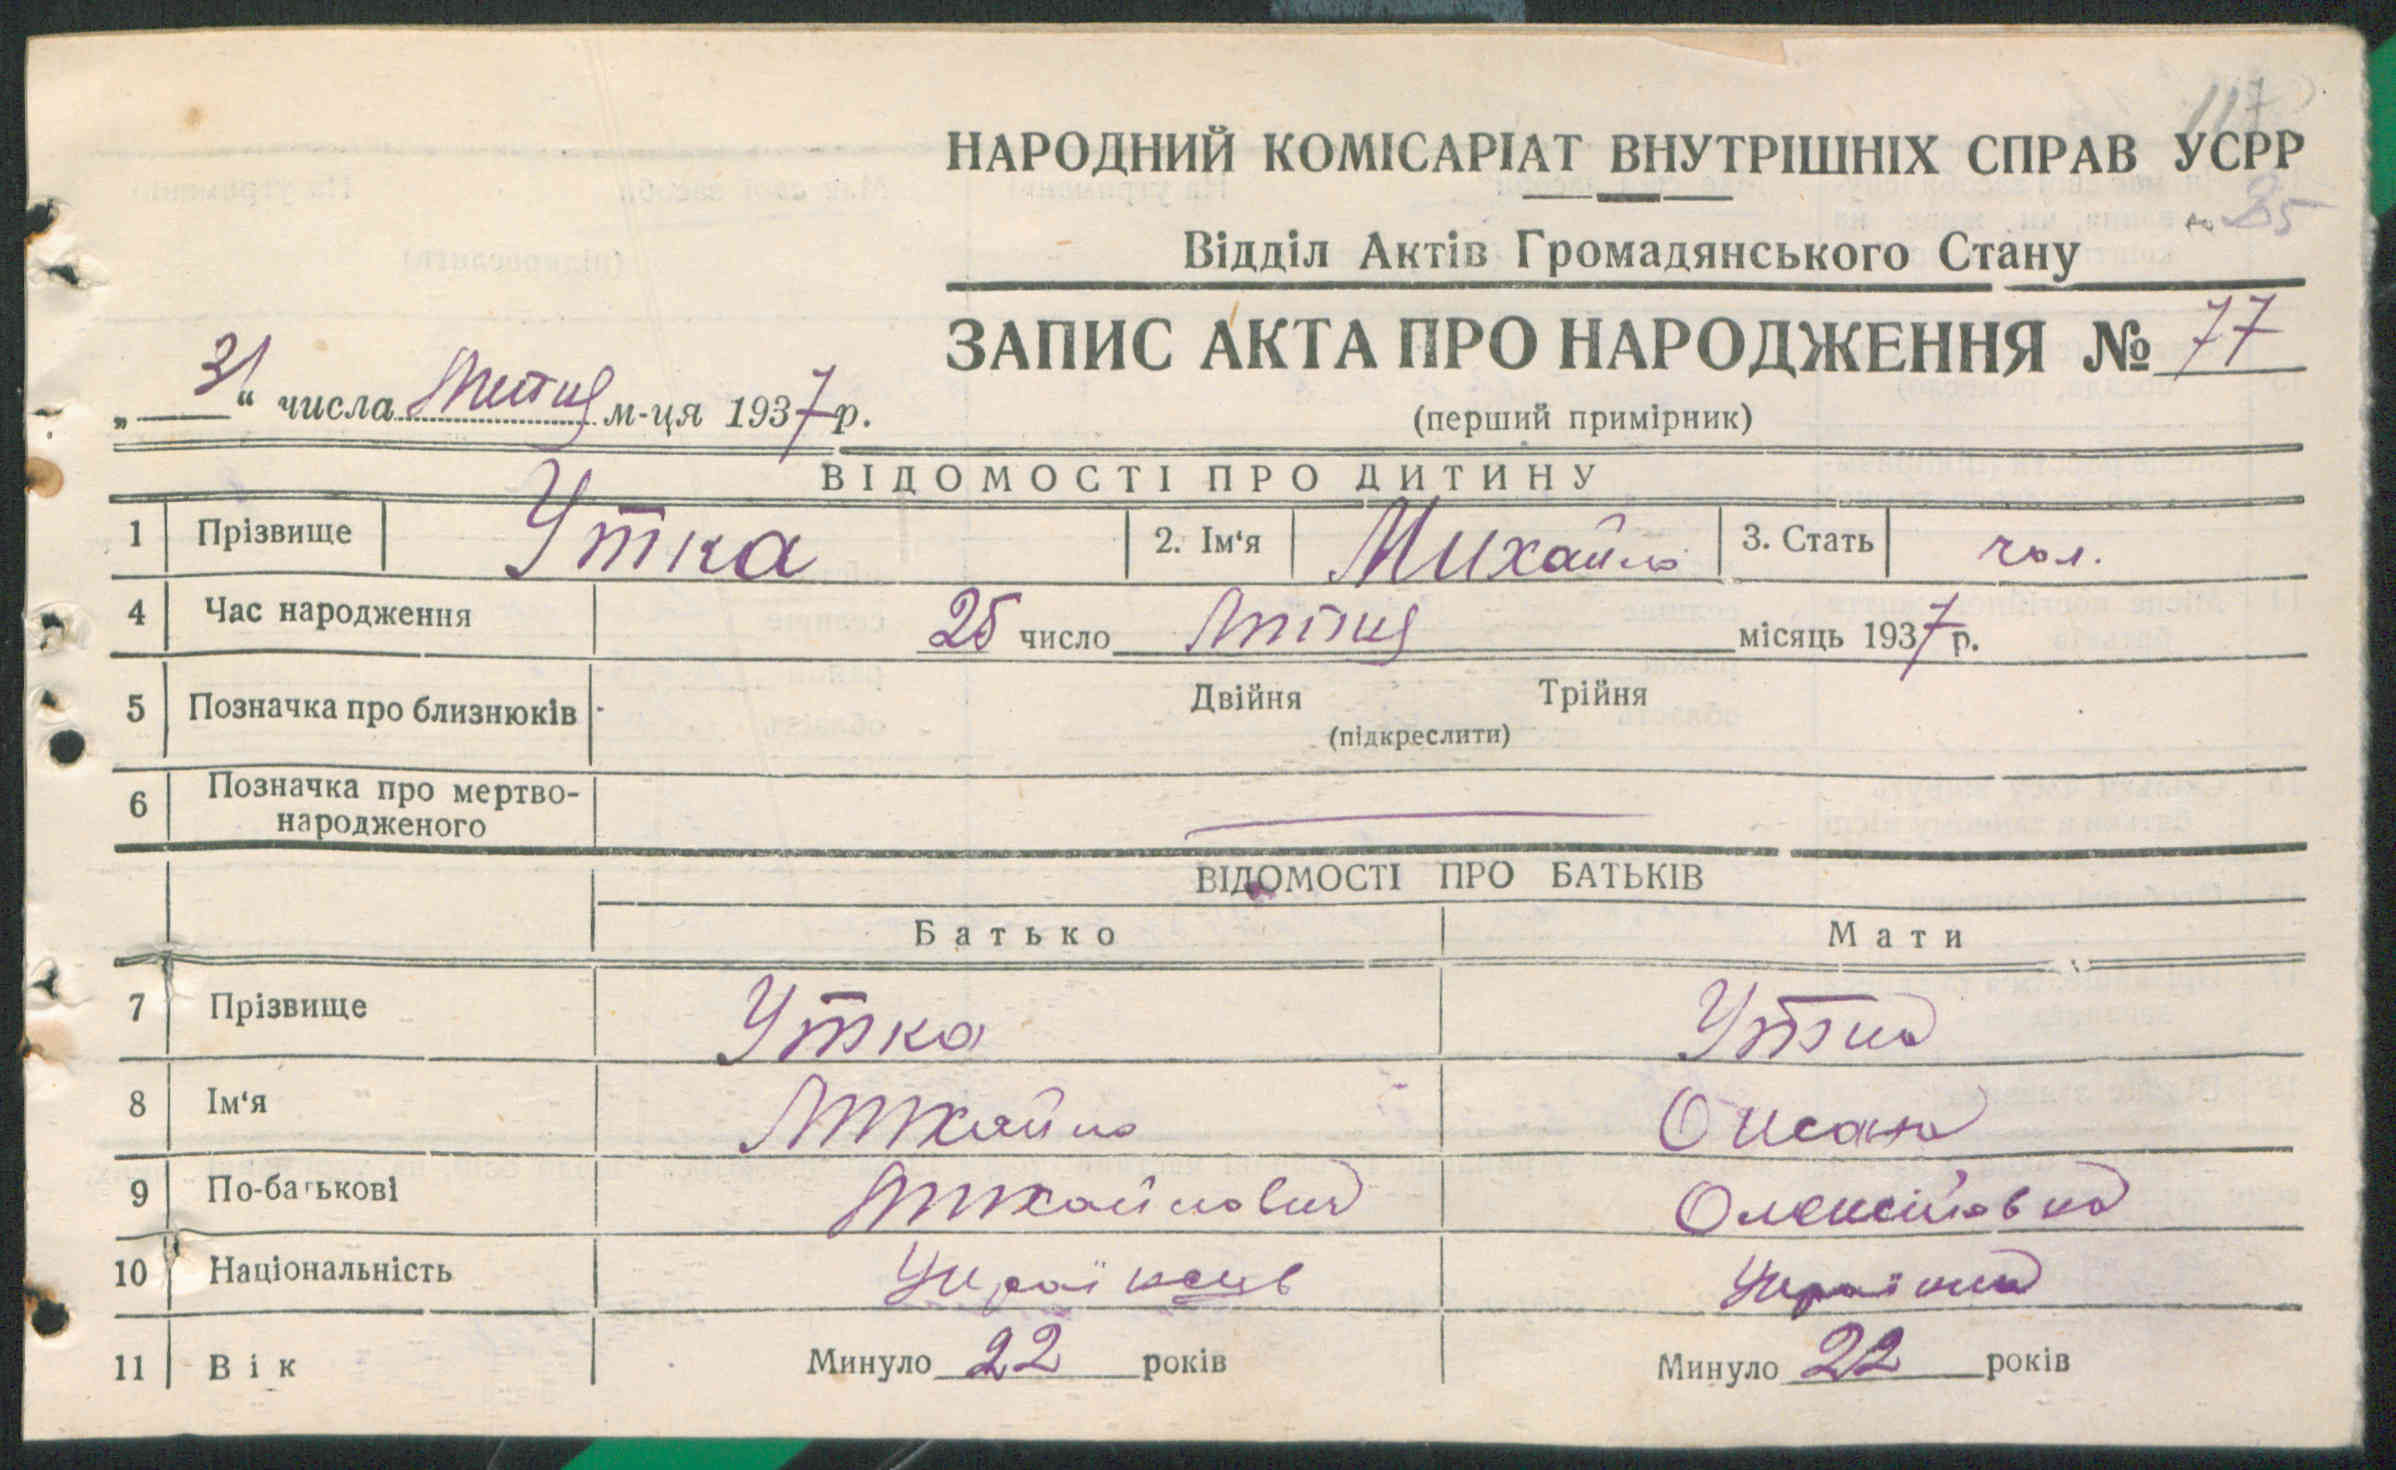 117
НАРОДНИЙ КОМІСАРІАТ ВНУТРІШНІХ СПРАВ УСРР
85
Відділ Актів Громадянського Стану
ЗАПИС АКТА ПРО НАРОДЖЕННЯ № 77
„31“ числа липня м-ця 1937 р.
(перший примірник)
ВІДОМОСТІ ПРО ДИТИНУ
1 Прізвище Утка 2. Ім‘я Михайло 3. Стать чол.
4 Час народження 25 число липня місяць 1937 р.
5 Позначка про близнюків Двійня Трійня
(підкреслити)
6 Позначка про мертво-
народженого
ВІДОМОСТІ ПРО БАТЬКІВ
Батько Мати
7 Прізвище Утка Утка
8 Ім‘я Михайло Оксана
9 По-батькові Михайлович Олексіївна
10 Національність Українець Українка
11 Вік Минуло 22 років Минуло 22 років